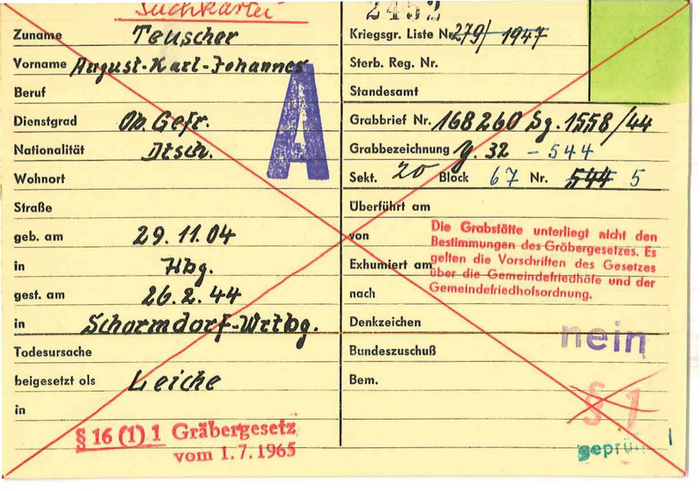 Suchkartei
Zuname Teuscher
Vorname August-Karl-Johannes
Beruf
Dienstgrad Ob. Gefr.
Nationalität Dtsch.
Wohnort
Straße
geb. am 29.11.04
in Hbg.
gest. am 26.2.44
in Schorndorf-Wrtbg.
Todesursache
beigesetzt als Leiche
in
§ 16 (1) 1 Gräbergesetz
vom 1.7.1965
A
2452
Kriegsgr. Liste Nr. 279/ 1947
Sterb. Reg. Nr.
Standesamt
Grabbrief Nr. 168260 Sg. 1558/44
Grabbezeichnung y. 32 - 544
Sekt. 20 Block 67 Nr. 544 5
Überführt am
von
Exhumiert am
nach
Denkzeichen
Bundeszuschuß
Bem.
Die Grabstätte unterliegt nicht den
Bestimmungen des Gräbergesetzes. Es
gelten die Vorschriften des Gesetzes
über die Gemeindefriedhöfe und der
Gemeindefriedhofsordnung.
nein
§ 1
geprüf